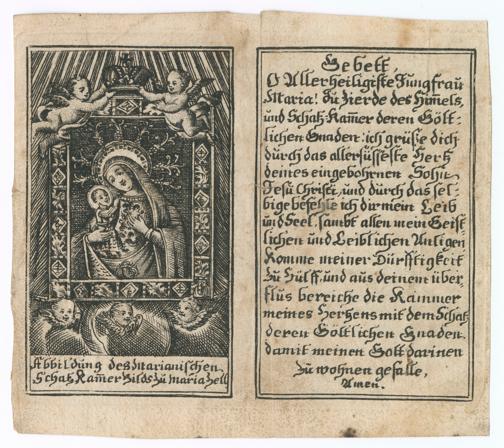 Abbildung des Marianischen
Schatz Kam̄er Bilds Zu Maria Zell
Gebett,
O Allerheiligiste Jungfrau
Maria! Du Zierde des Him̄els,
und Schatz-Kam̄er deren Gött-
lichen Gnaden: ich grüße dich
durch das allersüsseste Hertz
deines eingebohrnen Sohn
Jesu Christi, und durch das sel-
bige befehle ich dir mein Leib
und Seel, sambt allen mein Geist
lichen und Leiblichen Anligen
Komme meiner Dürfftigkeit
Zu Hülff, und aus deinem über
flus bereiche die Kammer
meines Hertzens mit dem Schatz
deren Göttlichen Gnaden,
damit meinen Gott darinen
Zu wohnen gefalle,
Amen.